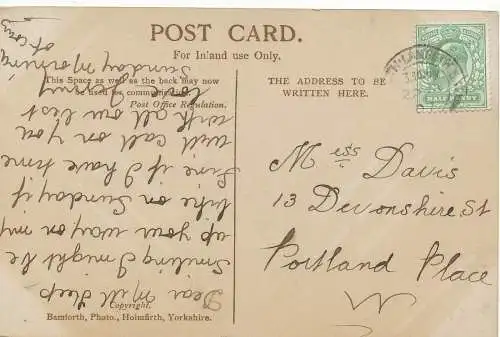 POST CARD.
For Inland use Only.
This Space as well as the back may now
be used for communication.
Post Office Regulation.
THE ADDRESS TO BE
WRITTEN HERE.
HALFPENNY
Dear Mill Keep
Smiling I might be
up your way on my
bike on Sunday if
fine if I have time
will call on you
with all our best
love
Sunday Morning
of
Mess Davis
13 Devonshire St
Portland Place
W
Copyright.
Bamforth, Photo., Holmfirth, Yorkshire.